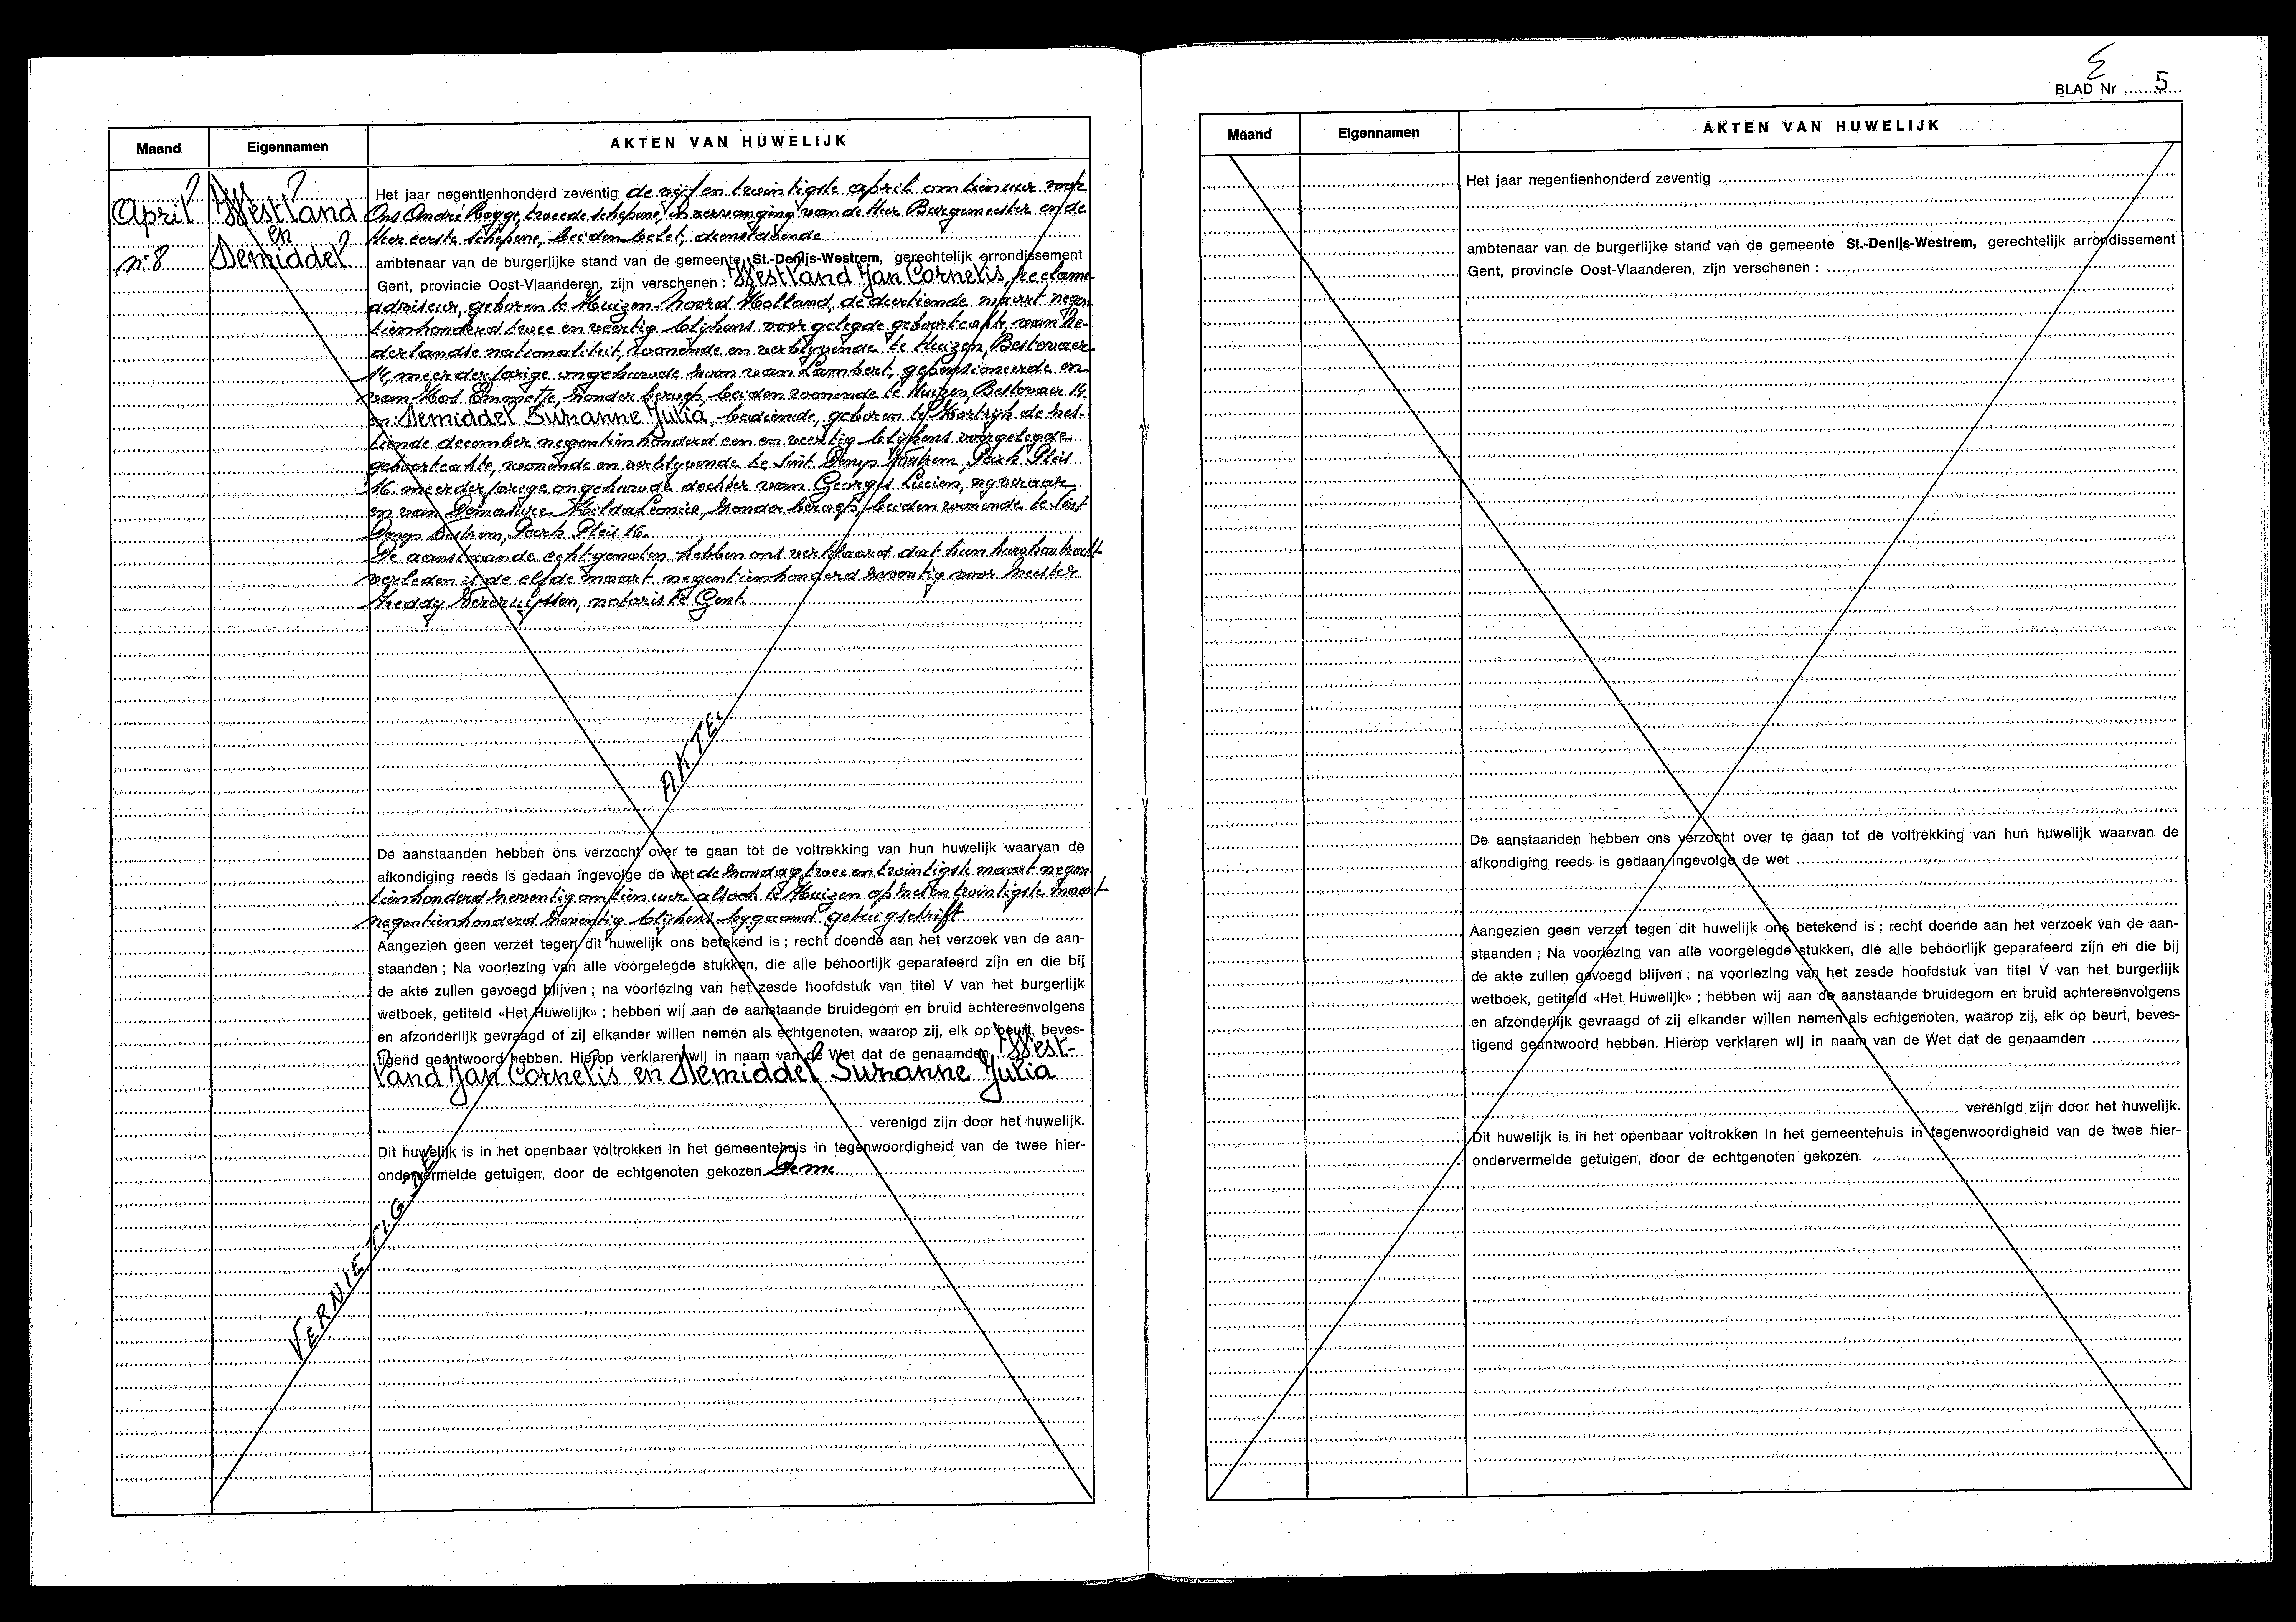 Maand Eigennamen AKTEN VAN HUWELIJK
April ? Westland ?
en
n: 8 Demiddel ?
Het jaar negentienhonderd zeventig de vijf en twintigste april om tien uur voor
Ons André Rogge, tweede schepene, in vervanging van de Heer Burgemeester en de
Heer eerste schepene, beiden belet, dienstdoende
ambtenaar van de burgerlijke stand van de gemeente St.-Denijs-Westrem, gerechtelijk arrondissement
Gent, provincie Oost-Vlaanderen, zijn verschenen : Westland Jan Cornelis, reclame
adviseur, geboren te Huizen-Noord Holland, de dertiende maart negen
tienhonderd twee en veertig blijkens voorgelegde geboorteakte, van Ne-
derlandse nationaliteit, wonende en verblijvende te Huizen, Bestevaer
14, meerderjarige ongehuwde zoon van Lambert, gepensioneerde en
van Kos Emmetje, zonder beroep, beiden wonende te Huizen, Bestevaer 14.
en: Demiddel Suzanne Julia, bediende, geboren te Kortrijk de zes-
tiende december negentienhonderd een en veertig blijkens voorgelegde
geboorteakte, wonende en verblijvende te Sint Denys Westrem, Park Plein
16. meerderjarige ongehuwde dochter van Georges Lucien, nyveraar
en van Hilda Leonie, zonder beroep, beiden wonende te Sint
Denys Westrem, Park Plein 16.
De aanstaande echtgenoten hebben ons verklaard dat hun huwkontrakt
verleden is de elfde maart negentienhonderd zeventig voor Meester
Freddy Vercruyssen, notaris te Gent.
AKTE.
De aanstaanden hebben ons verzocht over te gaan tot de voltrekking van hun huwelijk waarvan de
afkondiging reeds is gedaan ingevolge de wet de zondag twee en twintigste maart negen
tienhonderd zeventig om tien uur alsook te Huizen op zes en twintigste maart
negentienhonderd zeventig blijkens bygaand getuigschrift
Aangezien geen verzet tegen dit huwelijk ons betekend is ; recht doende aan het verzoek van de aan-
staanden ; Na voorlezing van alle voorgelegde stukken, die alle behoorlijk geparafeerd zijn en die bij
de akte zullen gevoegd blijven ; na voorlezing van het zesde hoofdstuk van titel V van het burgerlijk
wetboek, getiteld «Het Huwelijk» ; hebben wij aan de aanstaande bruidegom en bruid achtereenvolgens
en afzonderlijk gevraagd of zij elkander willen nemen als echtgenoten, waarop zij, elk op beurt, beves-
tigend geantwoord hebben. Hierop verklaren wij in naam van de Wet dat de genaamden West-
land Jan Cornelis en Demiddel Suzanne Julia
verenigd zijn door het huwelijk.
Dit huwelijk is in het openbaar voltrokken in het gemeentehuis in tegenwoordigheid van de twee hier-
ondervermelde getuigen, door de echtgenoten gekozen Deme
VERNIETIGDE
5
BLAD Nr 5
Maand Eigennamen AKTEN VAN HUWELIJK
Het jaar negentienhonderd zeventig
ambtenaar van de burgerlijke stand van de gemeente St.-Denijs-Westrem, gerechtelijk arrondissement
Gent, provincie Oost-Vlaanderen, zijn verschenen :
De aanstaanden hebben ons verzocht over te gaan tot de voltrekking van hun huwelijk waarvan de
afkondiging reeds is gedaan ingevolge de wet
Aangezien geen verzet tegen dit huwelijk ons betekend is ; recht doende aan het verzoek van de aan-
staanden ; Na voorlezing van alle voorgelegde stukken, die alle behoorlijk geparafeerd zijn en die bij
de akte zullen gevoegd blijven ; na voorlezing van het zesde hoofdstuk van titel V van het burgerlijk
wetboek, getiteld «Het Huwelijk» ; hebben wij aan de aanstaande bruidegom en bruid achtereenvolgens
en afzonderlijk gevraagd of zij elkander willen nemen als echtgenoten, waarop zij, elk op beurt, beves-
tigend geantwoord hebben. Hierop verklaren wij in naam van de Wet dat de genaamden
verenigd zijn door het huwelijk.
Dit huwelijk is in het openbaar voltrokken in het gemeentehuis in tegenwoordigheid van de twee hier-
ondervermelde getuigen, door de echtgenoten gekozen.